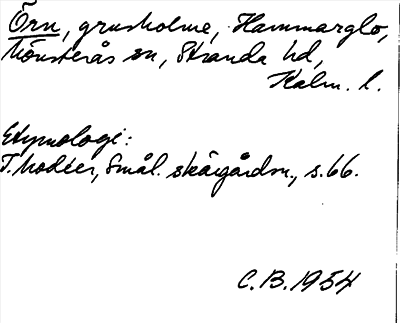 Örn, grusholme, Hammarglo,
Mönsterås sn, Stranda hd,
Kalm. l.
Etymologi:
T. Modéer, Smål. skärgårdsn., s. 66.
C. B. 1954